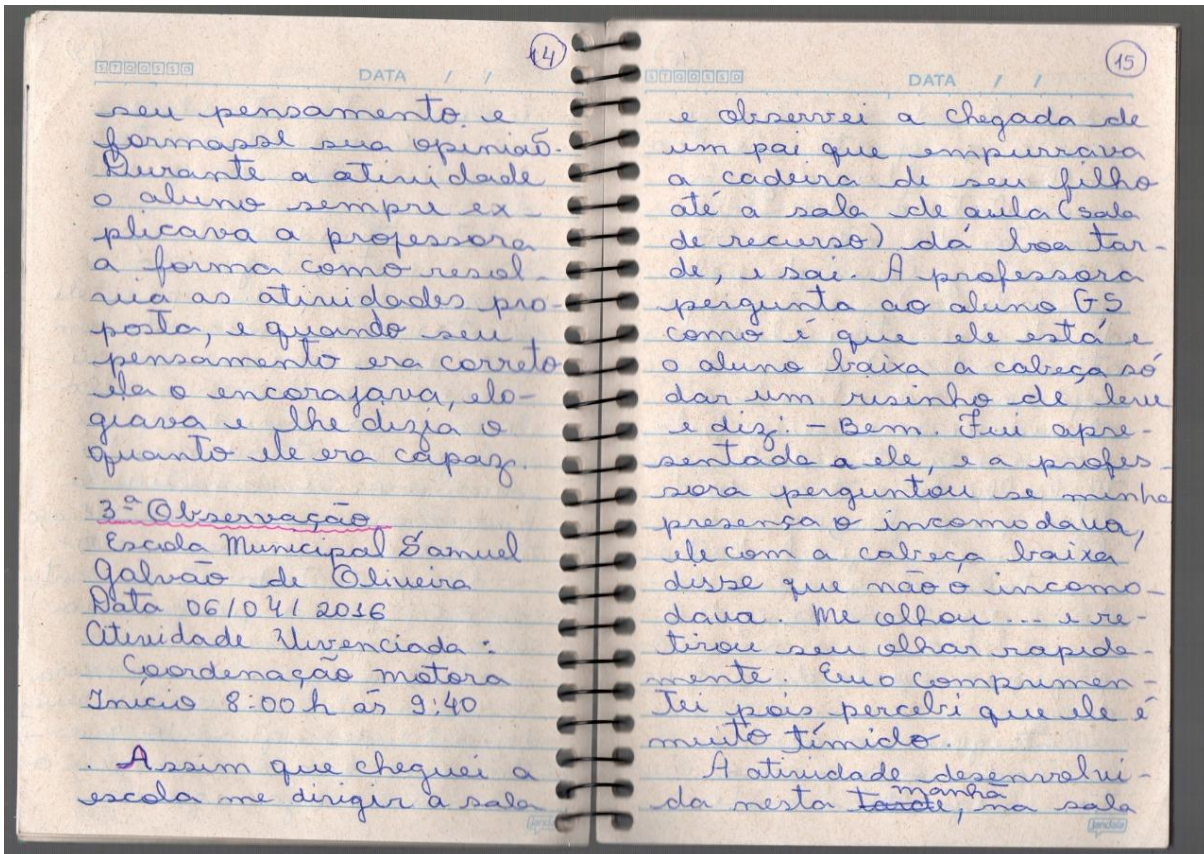 14
STQQSSD
DATA / /
seu pensamento e
formasse sua opinião.
Durante a atividade
o aluno sempre ex-
plicava a professora
a forma como resol-
via as atividades pro-
posta, e quando seu
pensamento era correto
ela o encorajava, elo-
giava e lhe dizia o
quanto ele era capaz.
3ª Observação
Escola Municipal Samuel
Galvão de Oliveira
Data 06/04/2016
Atividade Vivenciada:
Coordenação motora
Início 8:00 h ás 9:40
. Assim que cheguei a
escola me dirigir a sala
15
STQQSSD
DATA / /
e observei a chegada de
um pai que empurrava
a cadeira de seu filho
até a sala de aula (sala
de recurso) dá boa tar-
de, e sai. A professora
pergunta ao aluno GS
como é que ele está e
o aluno baixa a cabeça só
dar um risinho de leve
e diz: - Bem. Fui apre-
sentada a ele, e a profes-
sora perguntou se minha
presença o incomodava,
ele com a cabeça baixa
disse que não o incomo-
dava. Me olhou ... e re-
tirou seu olhar rapida-
mente. Eu o comprimen-
tei pois percebi que ele é
muito tímido.
A atividade desenvolvi-
da nesta tarde, manhã na sala
jandaia